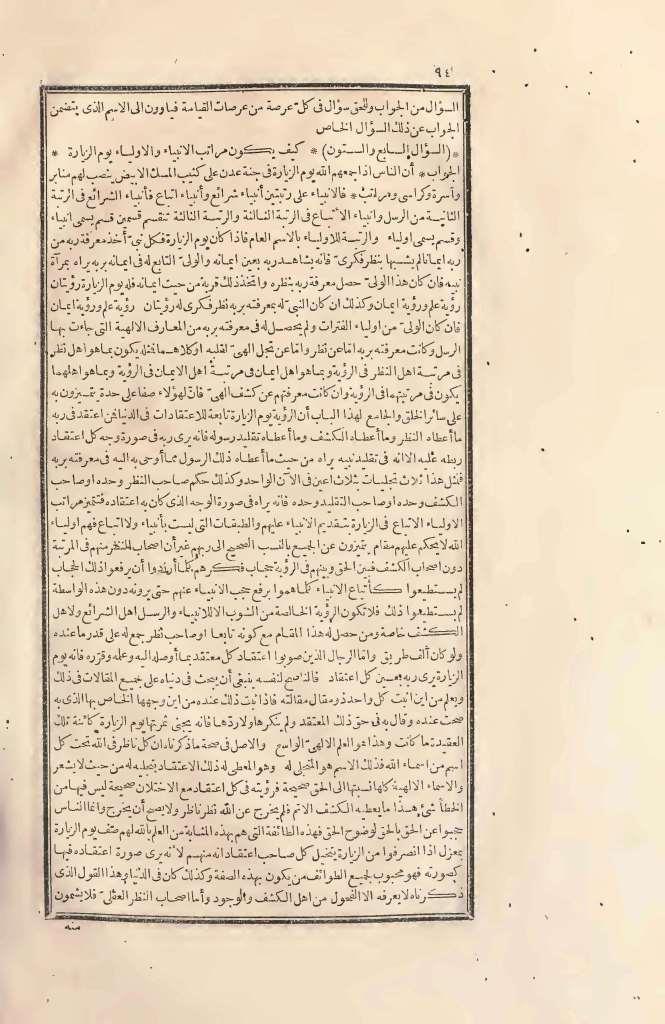 ٩٤
السؤال من الجواب والحق سؤال فى كل عرصة من عرصات القيامة فيأوون الى الاسم الذى يتضمن
الجواب عن ذلك السؤال الخاص
*(السؤال السابع والستون)* كيف يكون مراتب الانبياء والاولياء يوم الزيارة *
الجواب* أن الناس اذا جمعهم الله يوم الزيارة فى جنة عدن على كثيب المسك الابيض ينصب لهم منابر
وأسرة وكراسى ومراتب* فالانبياء على رتبتين أنبياء شرائع وأنبياء اتباع فأنبياء الشرائع فى الرتبة
الثانية من الرسل وانبياء الاتباع فى الرتبة الثالثة والرتبة الثالثة تنقسم قسمين قسم يسمى انبياء
وقسم يسمى اولياء والرتبة للاولياء بالاسم العام فاذا كان يوم الزيارة فكل نبى أخذ معرفة ربه من
ربه ايمانا لم يشبها بنظر فكرى فانه يشاهد ربه بعين ايمانه والولى التابع له فى ايمانه بربه يراه بمرآة
نبيه فان كان هذا الولى حصل معرفة ربه بنظره واتخذ ذلك قربة من حيث ايمانه فله يوم الزيارة رؤيتان
رؤية علم ورؤية ايمان وكذلك ان كان النبى له بمعرفته بربه نظر فكرى له رؤيتان رؤية علم ورؤية ايمان
فان كان الولى من اولياء الفترات ولم يحصل له فى معرفته بربه من المعارف الالهية التى جاءت بها
الرسل وكانت معرفته بربه اما عن نظر واما عن تجل الهى لقلبه او كلاهما فمثله يكون بما هو اهل نظر
فى مرتبة اهل النظر فى الرؤية وبما هو اهل ايمان فى مرتبة اهل الايمان فى الرؤية وبما هو اهلهما
يكون فى مرتبتيهما فى الرؤية وان كانت معرفتهم عن كشف الهى فان لهؤلاء صفا على حدة يتميزون به
على سائر الخلق والجامع لهذا الباب أن الرؤية يوم الزيارة تابعة للاعتقادات فى الدنيا فمن اعتقد فى ربه
ما أعطاه النظر وما أعطاه الكشف وما أعطاه تقليد رسوله فانه يرى ربه فى صورة وجه كل اعتقاد
ربطه عليه الا انه فى تقليد نبيه يراه من حيث ما أعطاه ذلك الرسول مما أوحى به اليه فى معرفته بربه
فلمثل هذا ثلاث تجليات بثلاث اعين فى الآن الواحد وكذلك حكم صاحب النظر وحده او صاحب
الكشف وحده او صاحب التقليد وحده فانه يراه فى صورة الوجه الذى كان به اعتقاده فتتميز مراتب
الاولياء الاتباع فى الزيارة بتقديم الانبياء عليهم والطبقات التى ليست بأنبياء ولا اتباع فهم اولياء
الله لا يحكم عليهم مقام يتميزون عن الجميع بالنسب الصحيح الى ربهم غير أن اصحاب النظر منهم فى المرتبة
دون اصحاب الكشف فبين الحق وبينهم فى الرؤية حجاب فكرهم كلما أرادوا أن يرفعوا ذلك الحجاب
لم يستطيعوا كأتباع الانبياء كلما هموا برفع حجب الانبياء عنهم حتى يرونه دون هذه الواسطة
لم يستطيعوا ذلك فلا تكون الرؤية الخالصة من الشوب الا للانبياء والرسل اهل الشرائع ولاهل
الكشف خاصة ومن حصل له هذا المقام مع كونه تابعا او صاحب نظر جمع له على قدر ما عنده
ولو كان ألف طريق واما الرجال الذين صوبوا اعتقاد كل معتقد بما أوصله اليه وعلمه وقرره فانه يوم
الزيارة يرى ربه بعين كل اعتقاد فالناصح لنفسه ينبغى أن يبحث فى دنياه على جميع المقالات فى ذلك
ويعلم من اين اثبت كل واحد ذو مقال مقالته فاذا ثبت ذلك عنده من اين وجهها الخاص بها الذى به
صحت عنده وقال به فى حق ذلك المعتقد ولم ينكرها ولا ردها فانه يجنى ثمرتها يوم الزيارة كائنة تلك
العقيدة ما كانت وهذا هو العلم الالهى الواسع والاصل فى صحة ما ذكرناه ان كل ناظر فى الله تحت كل
اسم من اسماء الله فذلك الاسم هو المتجلى له وهو المعطى له ذلك الاعتقاد بتجليه له من حيث لا يشعر
والاسماء الالهية كلها نسبتها الى الحق صحيحة فرؤيته فى كل اعتقاد مع الاختلاف صحيحة ليس فيها من
الخطأ شئ هذا ما يعطيه الكشف الاتم فلم يخرج عن الله نظر ناظر ولا يصح أن يخرج وانما الناس
حجبوا عن الحق بالحق لوضوح الحق فهذه الطائفة التى هم بهذه المثابة من العلم بالله لهم صف يوم الزيارة
بمعزل اذا انصرفوا من الزيارة يتخيل كل صاحب اعتقاد انه منهم لانه يرى صورة اعتقاده فيها
كصورته فهو محبوب لجميع الطوائف من يكون بهذه الصفة وكذلك كان فى الدنيا وهذا القول الذى
ذكرناه لا يعرفه الا الفحول من اهل الكشف والوجود وأما اصحاب النظر العقلى فلا يشمون